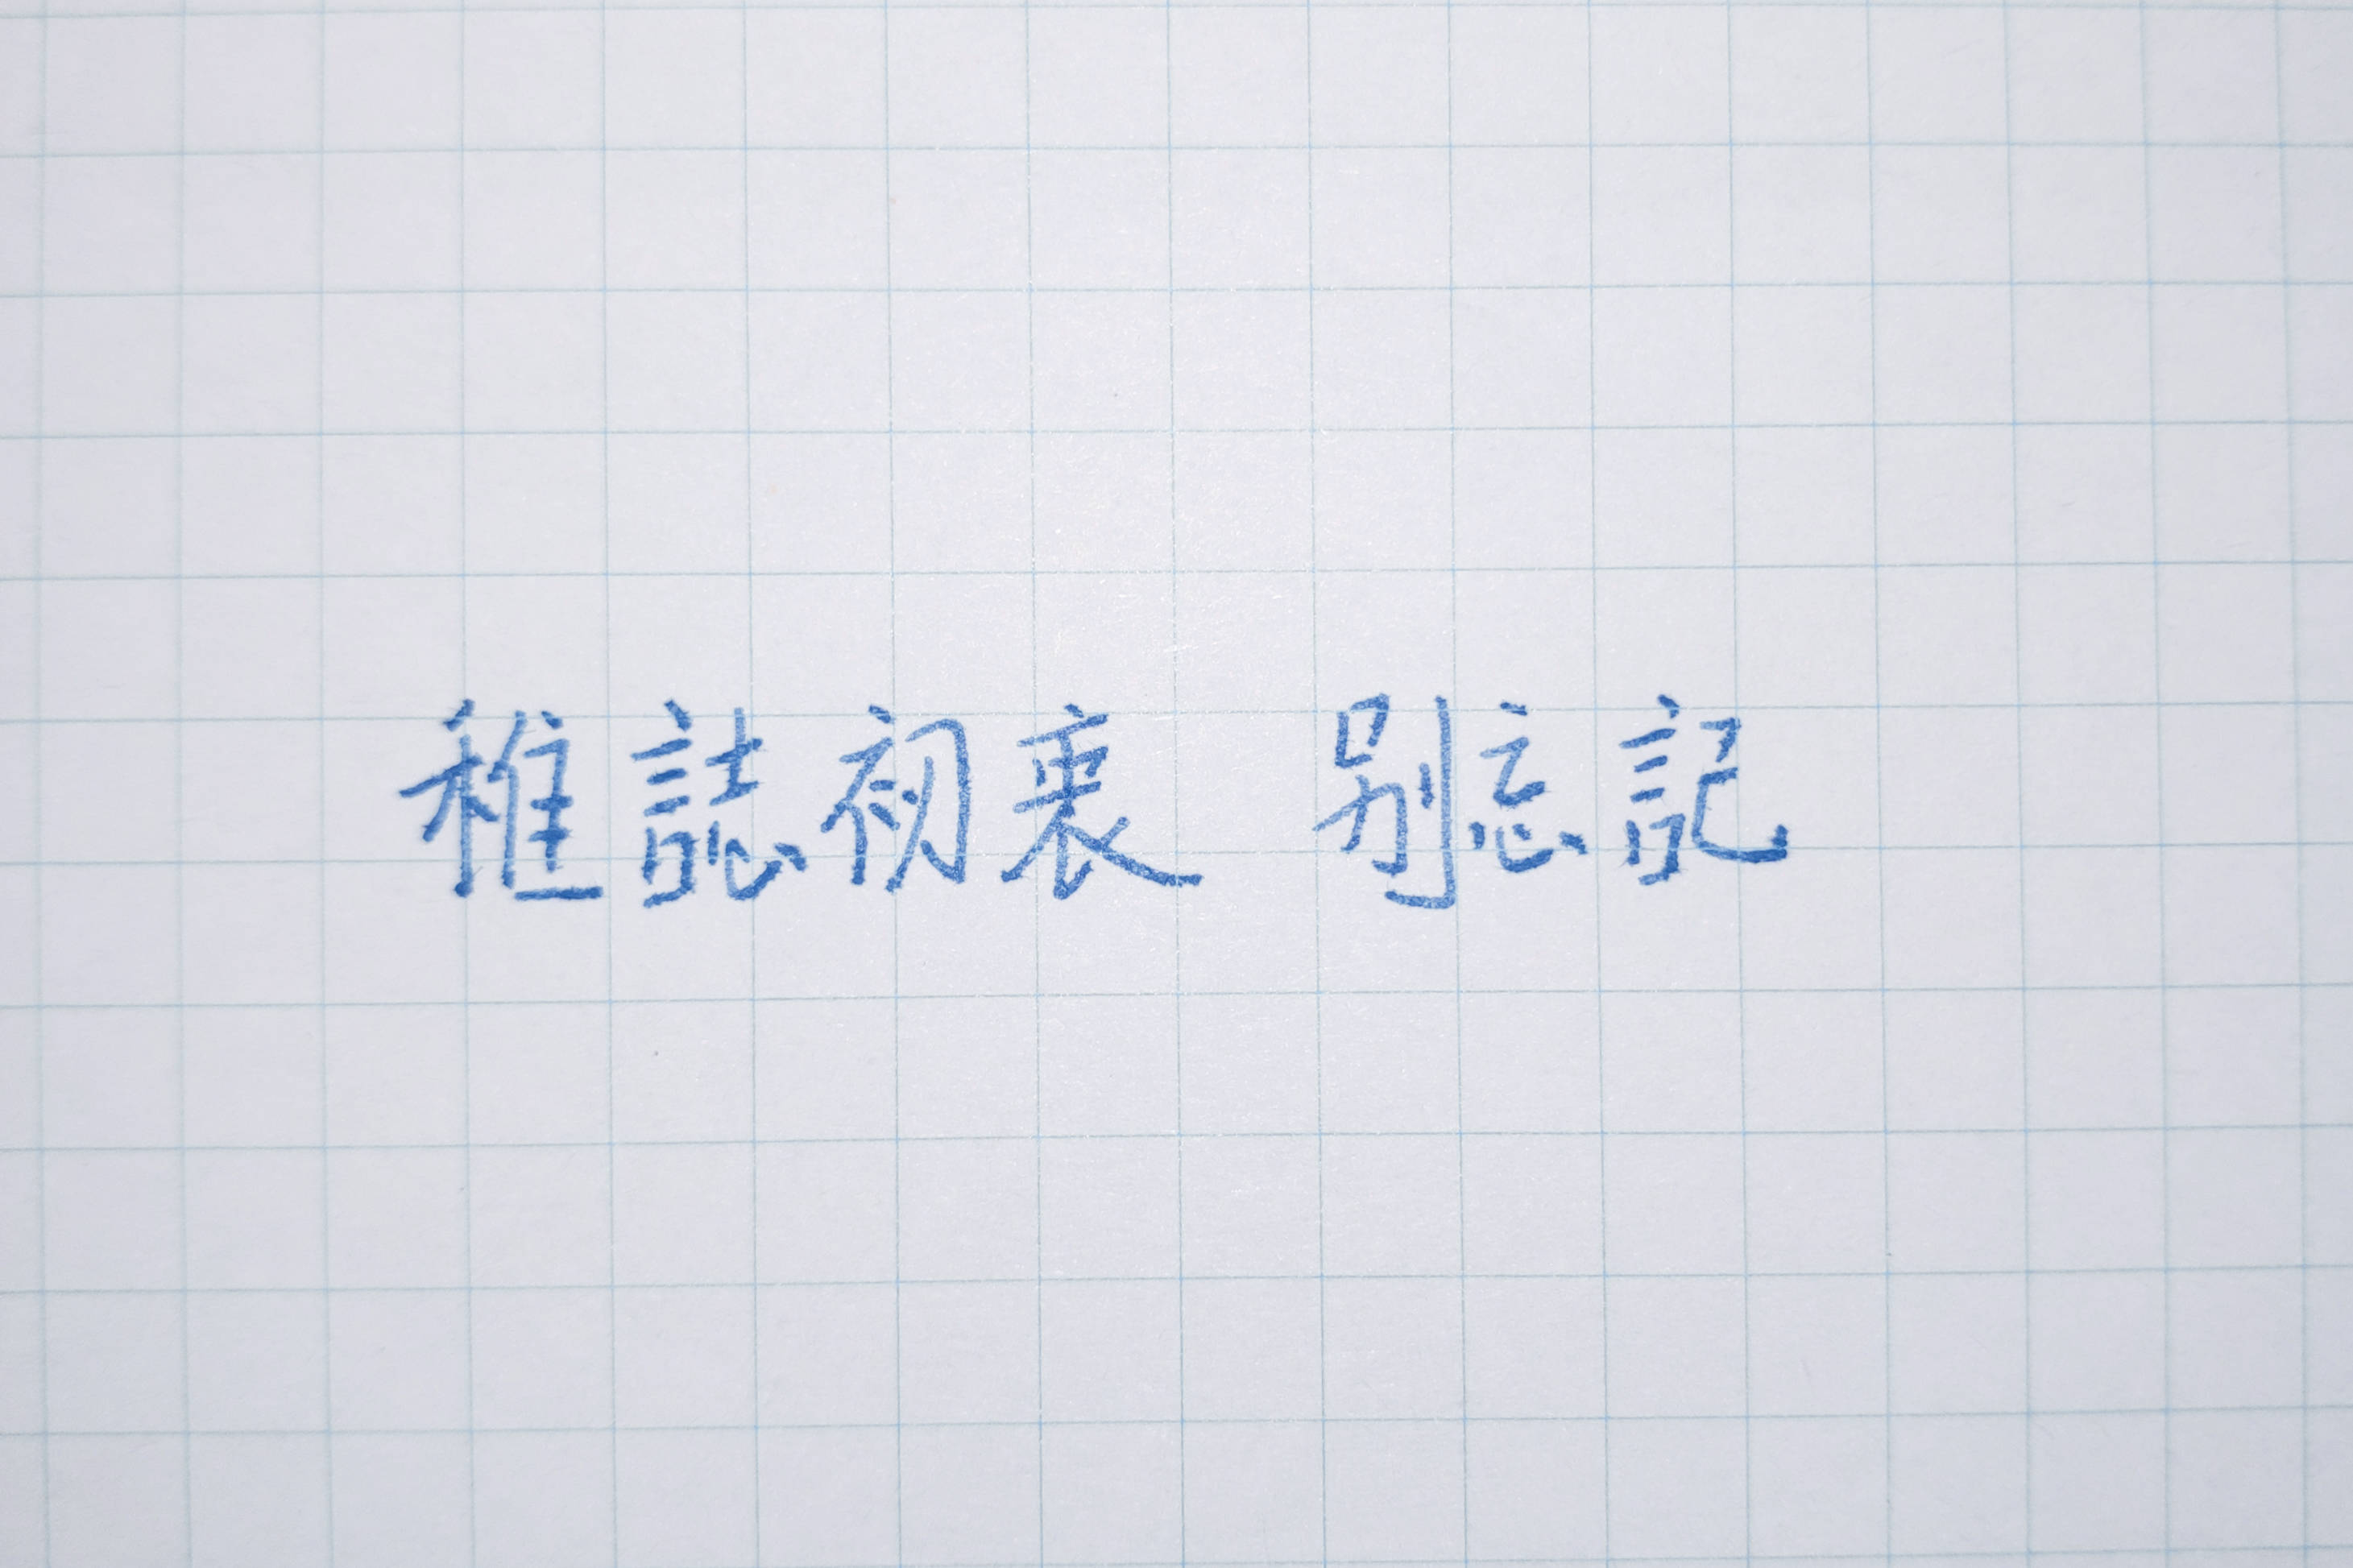 稚誌初衷 別忘記